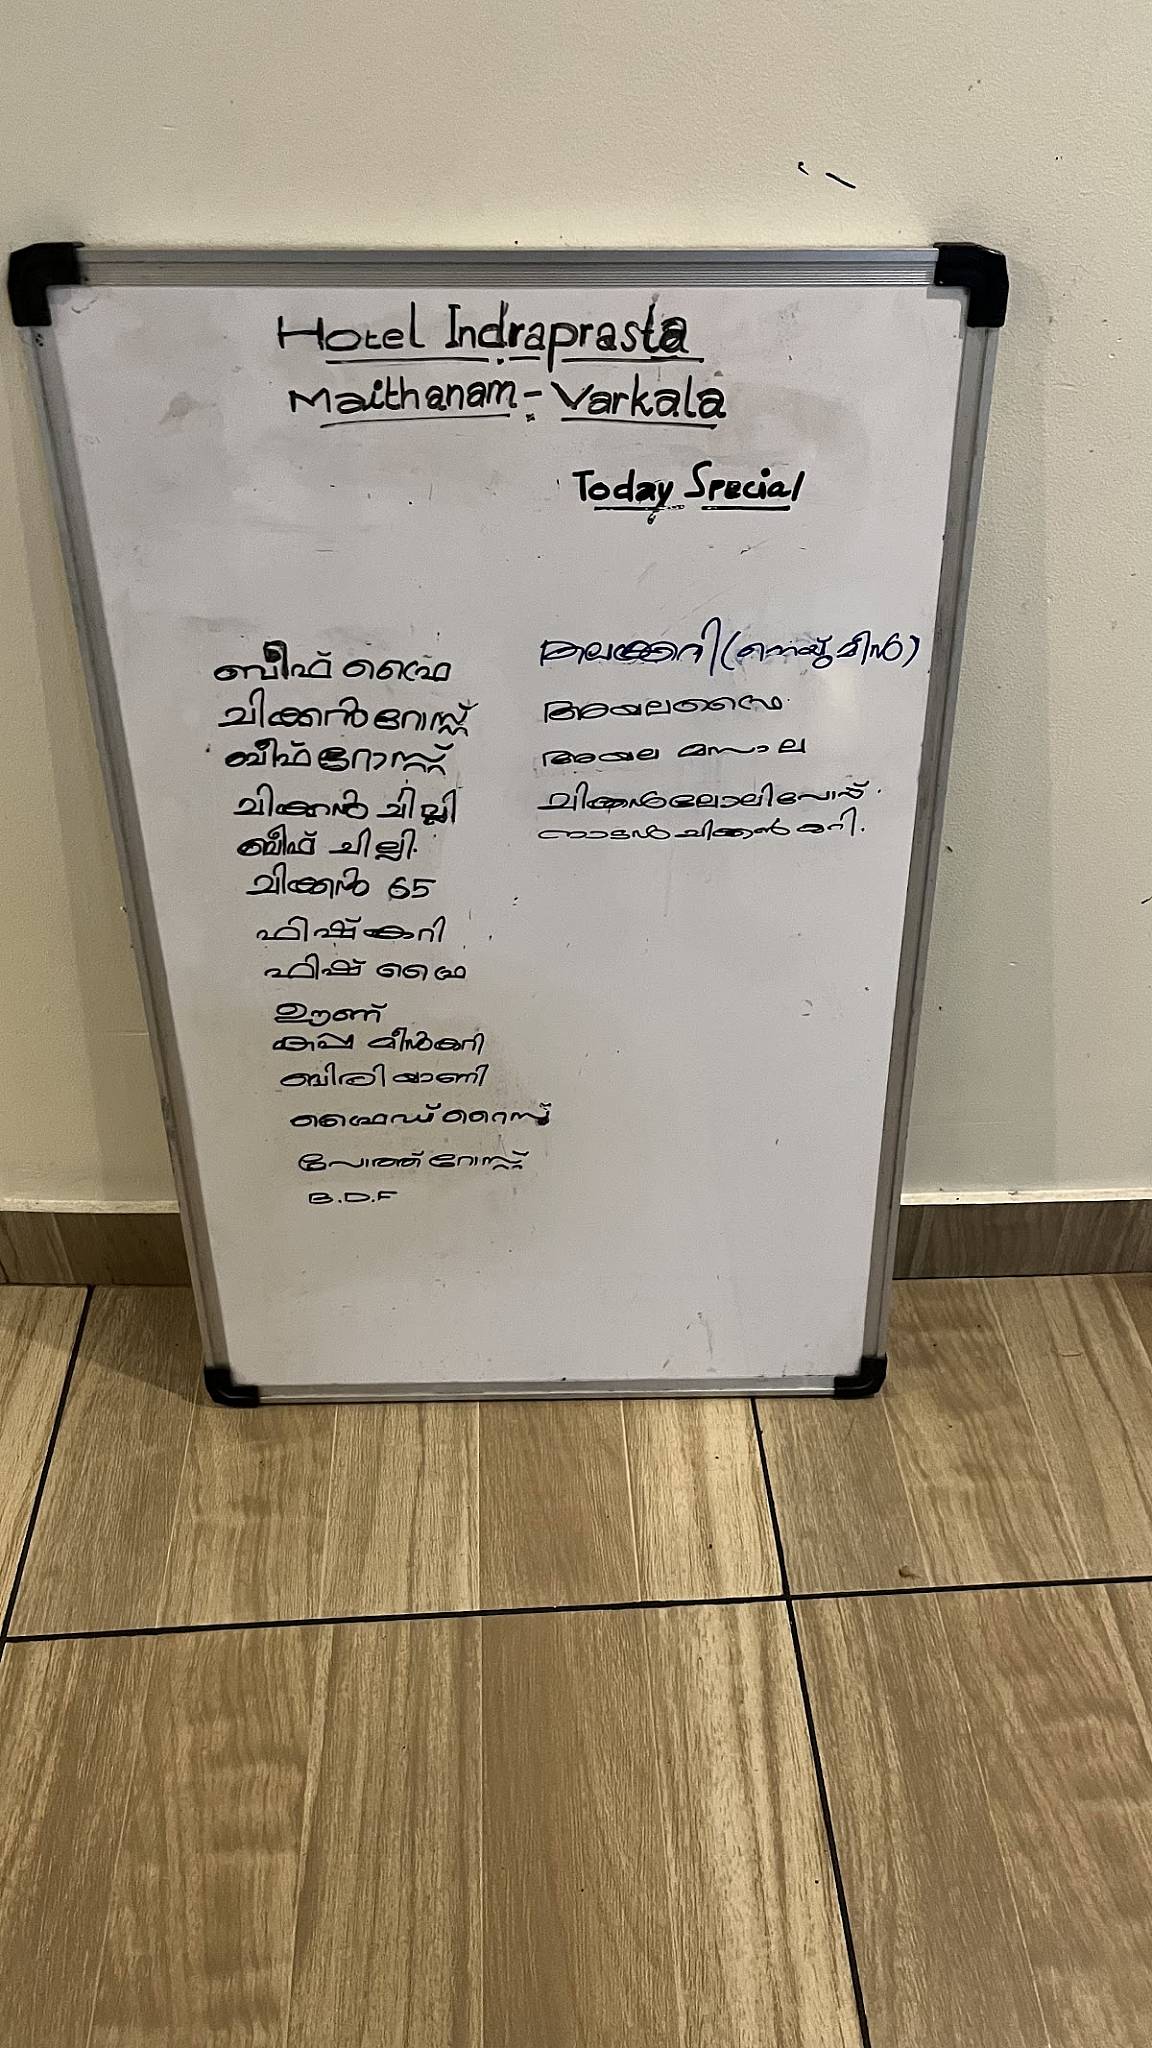 Hotel Indraprasta
Maithanam - Varkala
Today Special
ബീഫ് ഫ്രൈ
ചിക്കൻ റോസ്റ്റ്
ബീഫ് റോസ്റ്റ്
ചിക്കൻ ചില്ലി
ബീഫ് ചില്ലി.
ചിക്കൻ 65
ഫിഷ് കറി
ഫിഷ് ഫ്രൈ
ഊണ്
കപ്പ മീൻകറി
ബിരിയാണി
ഫ്രൈഡ് റൈസ്
പോത്ത് റോസ്റ്റ്
B.D.F
തലക്കറി (നെയ്യ് മീൻ)
അയല ഫ്രൈ.
അയല മസാല
ചിക്കൻ ലോലിപോപ്പ്.
നാടൻ ചിക്കൻ കറി.